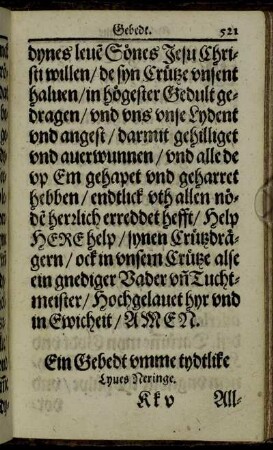 Gebedt. 521
dynes leuē Sönes Jesu Chri-
sti willen / de syn Crütze vnsent
haluen / in högester Gedult ge-
dragen / vnd vns vnse Lydent
vnd angest / darmit gehilliget
vnd auerwunnen / vnd alle de
vp Em gehapet vnd geharret
hebben / endtlick vth allen nö-
dē herrlich erreddet hefft / Help
HERE help / synen Crützdrä-
gern / ock in vnsem Crütze alse
ein gnediger Vader vn̄ Tucht-
meister / Hochgelauet hyr vnd
in Ewicheit / AMEN.
Ein Gebedt vmme tydtlike
Lyues Neringe.
Kk v All-